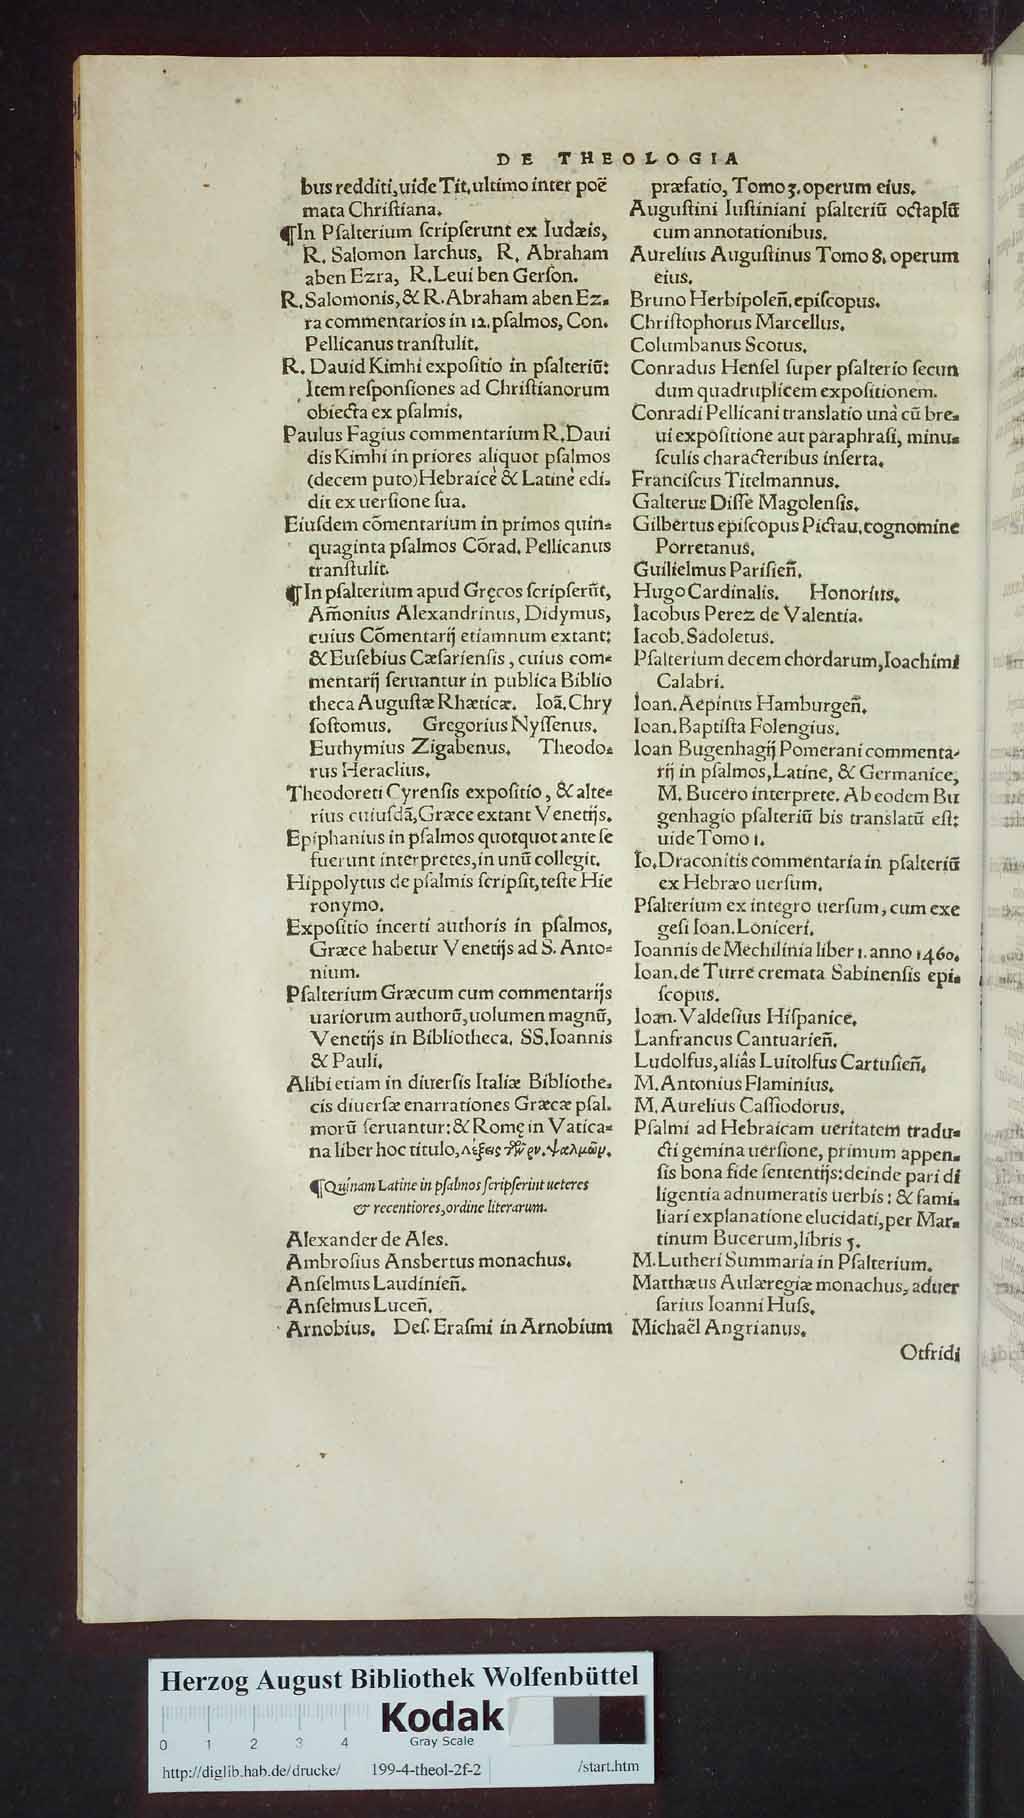 DE THEOLOGIA
bus redditi, uide Tit. ultimo inter poẽ
mata Chriſtiana.
¶In Pſalterium ſcripſerunt ex Iudæis,
R. Salomon Iarchus, R. Abraham
aben Ezra, R. Leui ben Gerſon.
R. Salomonis, & R. Abraham aben Ez⸗
ra commentarios in 12. pſalmos, Con.
Pellicanus tranſtulit.
R. Dauid Kimhi expoſitio in pſalteriũ:
Item reſponſiones ad Chriſtianorum
obiecta ex pſalmis.
Paulus Fagius commentarium R. Daui
dis Kimhi in priores aliquot pſalmos
(decem puto) Hebraicè & Latinè edi⸗
dit ex uerſione ſua.
Eiuſdem cõmentarium in primos quin⸗
quaginta pſalmos Cõrad. Pellicanus
tranſtulit.
¶In pſalterium apud Gręcos ſcripſerũt,
Am̃onius Alexandrinus, Didymus,
cuius Cõmentarij etiamnum extant:
& Euſebius Cæſarienſis, cuius com⸗
mentarij ſeruantur in publica Biblio
theca Auguſtæ Rhæticæ. Ioã. Chry
ſoſtomus. Gregorius Nyſſenus.
Euthymius Zigabenus. Theodo⸗
rus Heraclius.
Theodoreti Cyrenſis expoſitio, & alte⸗
rius cuiuſdã, Græce extant Venetijs.
Epiphanius in pſalmos quotquot ante ſe
fuerunt interpretes, in unũ collegit.
Hippolytus de pſalmis ſcripſit, teſte Hie
ronymo.
Expoſitio incerti authoris in pſalmos,
Græce habetur Venetijs ad S. Anto⸗
nium.
Pſalterium Græcum cum commentarijs
uariorum authorũ, uolumen magnũ,
Venetijs in Bibliotheca. SS. Ioannis
& Pauli.
Alibi etiam in diuerſis Italiæ Bibliothe⸗
cis diuerſæ enarrationes Græcæ pſal.
morũ ſeruantur: & Romę in Vatica⸗
na liber hoc titulo, λέξεις τῶν ψαλμῶν.
¶Quinam Latine in pſalmos ſcripſerint ueteres
& recentiores, ordine literarum.
Alexander de Ales.
Ambroſius Ansbertus monachus.
Anſelmus Laudinien̄.
Anſelmus Lucen̄.
Arnobius. Deſ. Eraſmi in Arnobium
præfatio, Tomo 3. operum eius.
Auguſtini Iuſtiniani pſalteriũ octaplũ
cum annotationibus.
Aurelius Auguſtinus Tomo 8. operum
eius.
Bruno Herbipolen̄. epiſcopus.
Chriſtophorus Marcellus.
Columbanus Scotus.
Conradus Henſel ſuper pſalterio ſecun
dum quadruplicem expoſitionem.
Conradi Pellicani translatio unà cũ bre⸗
ui expoſitione aut paraphraſi, minu⸗
ſculis characteribus inſerta.
Franciſcus Titelmannus.
Galterus Diſſe Magolenſis.
Gilbertus epiſcopus Pictau. cognomine
Porretanus.
Guilielmus Pariſien̄.
Hugo Cardinalis. Honorius.
Iacobus Perez de Valentia.
Iacob. Sadoletus.
Pſalterium decem chordarum, Ioachimi
Calabri.
Ioan. Aepinus Hamburgen̄.
Ioan. Baptiſta Folengius.
Ioan Bugenhagij Pomerani commenta⸗
rij in pſalmos, Latine, & Germanice,
M. Bucero interprete. Ab eodem Bu
genhagio pſalteriũ bis translatũ eſt:
uide Tomo 1.
Io. Draconitis commentaria in pſalteriũ
ex Hebræo uerſum.
Pſalterium ex integro uerſum, cum exe
geſi Ioan. Loniceri.
Ioannis de Mechilinia liber 1. anno 1460.
Ioan. de Turre cremata Sabinenſis epi⸗
ſcopus.
Ioan. Valdeſius Hiſpanice.
Lanfrancus Cantuarien̄.
Ludolfus, aliâs Luitolfus Cartuſien̄.
M. Antonius Flaminius.
M. Aurelius Caſſiodorus.
Pſalmi ad Hebraicam ueritatem tradu⸗
cti gemina uerſione, primum appen⸗
ſis bona fide ſententijs: deinde pari di
ligentia adnumeratis uerbis: & fami⸗
liari explanatione elucidati, per Mar⸗
tinum Bucerum, libris 5.
M. Lutheri Summaria in Pſalterium.
Matthæus Aulæregiæ monachus, aduer
ſarius Ioanni Huſs.
Michaël Angrianus.
Otfridi
Herzog August Bibliothek Wolfenbüttel
Kodak
Gray Scale
0 1 2 3 4
http://diglib.hab.de/drucke/ 199-4-theol-2f-2 /start.htm